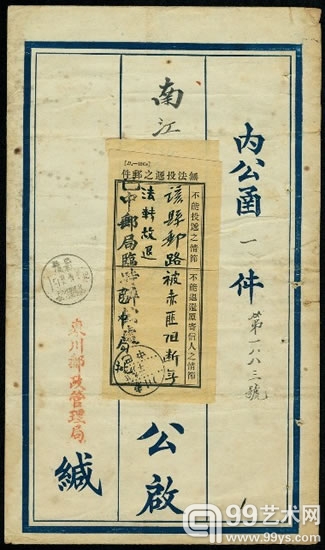 內公函一件
第一八八三號
南江
公啟
東川郵政管理局
緘
無法投遞之郵件
不能投遞之情節
不能退還原寄信人之情節
該縣郵路被赤匪阻斷無
法轉故退
巴中郵局臨時辦
99艺术网
www.99ys.com